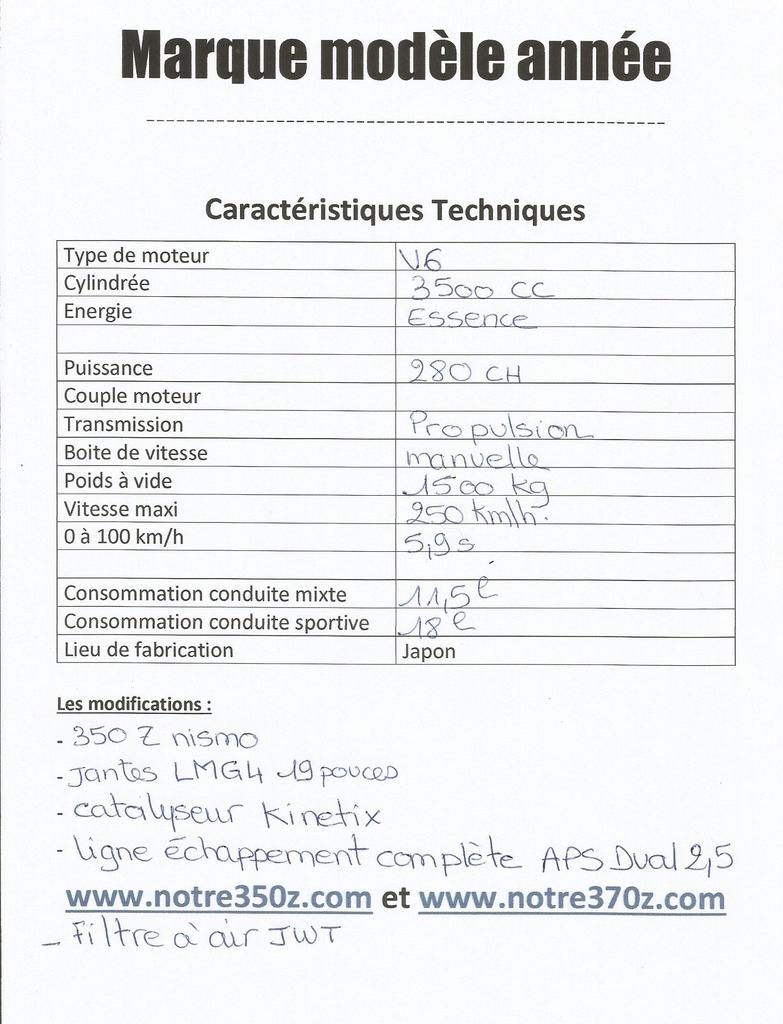 Marque modèle année
----------------------------------------------------
Caractéristiques Techniques
Type de moteur V6
Cylindrée 3500 CC
Energie Essence
Puissance 280 CH
Couple moteur
Transmission Propulsion
Boite de vitesse manuelle
Poids à vide 1500 kg
Vitesse maxi 250 km/h.
0 à 100 km/h 5,9 s
Consommation conduite mixte 11,5 l
Consommation conduite sportive 18 l
Lieu de fabrication Japon
Les modifications :
- 350 Z nismo
- Jantes LMG4 19 pouces
- catalyseur Kinetix
- ligne échappement complète APS Dual 2,5
www.notre350z.com et www.notre370z.com
- Filtre à air JWT